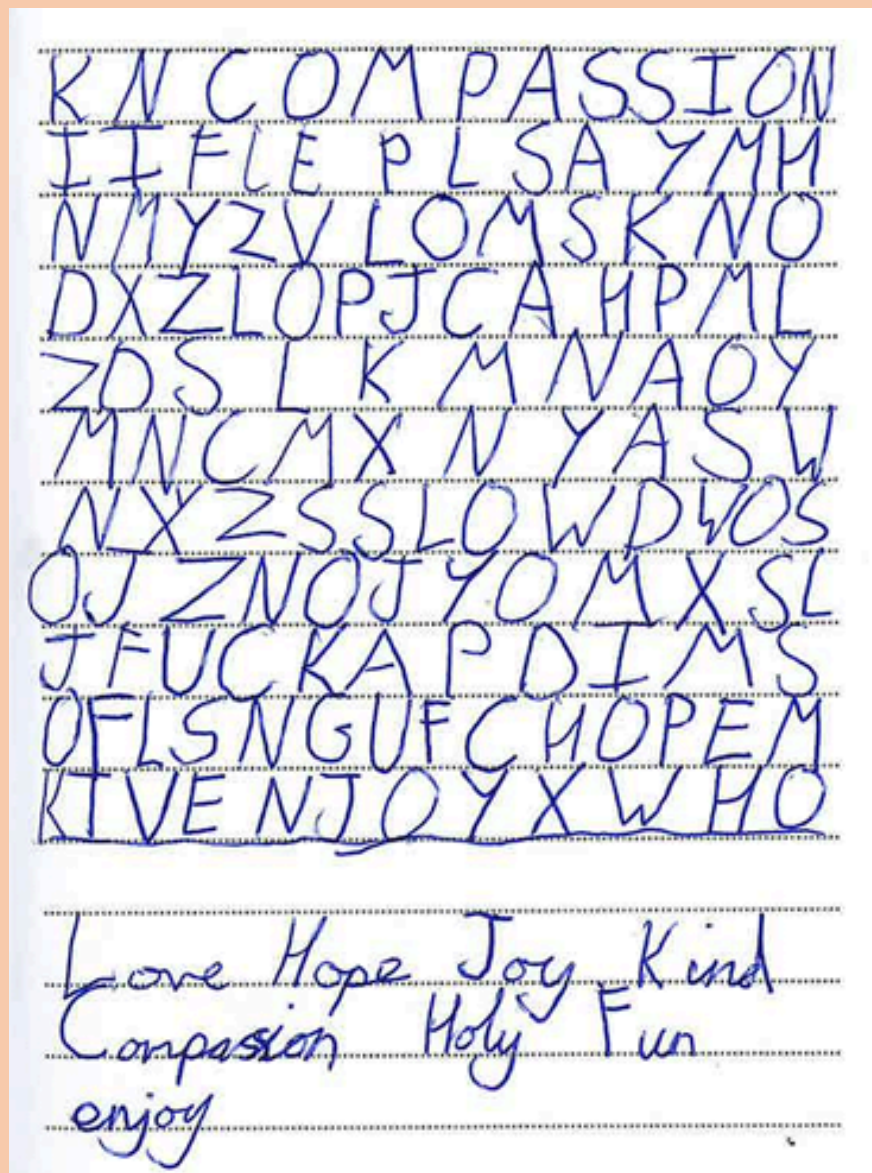 K N C O M P A S S I O N
I I F L E P L S A Y M H
N M Y Z V L O M S K N O
D X Z L O P J C A H P M L
Z D S L K M N A O Y
M N C M X N Y A S W
N X Z S S L O W D W O S
O J Z N O J Y O M X S L
J F U C K A P D I M S
O F L S N G U F C H O P E M
K I V E N J O Y X W H O
Love Hope Joy Kind
Compassion Holy Fun
enjoy